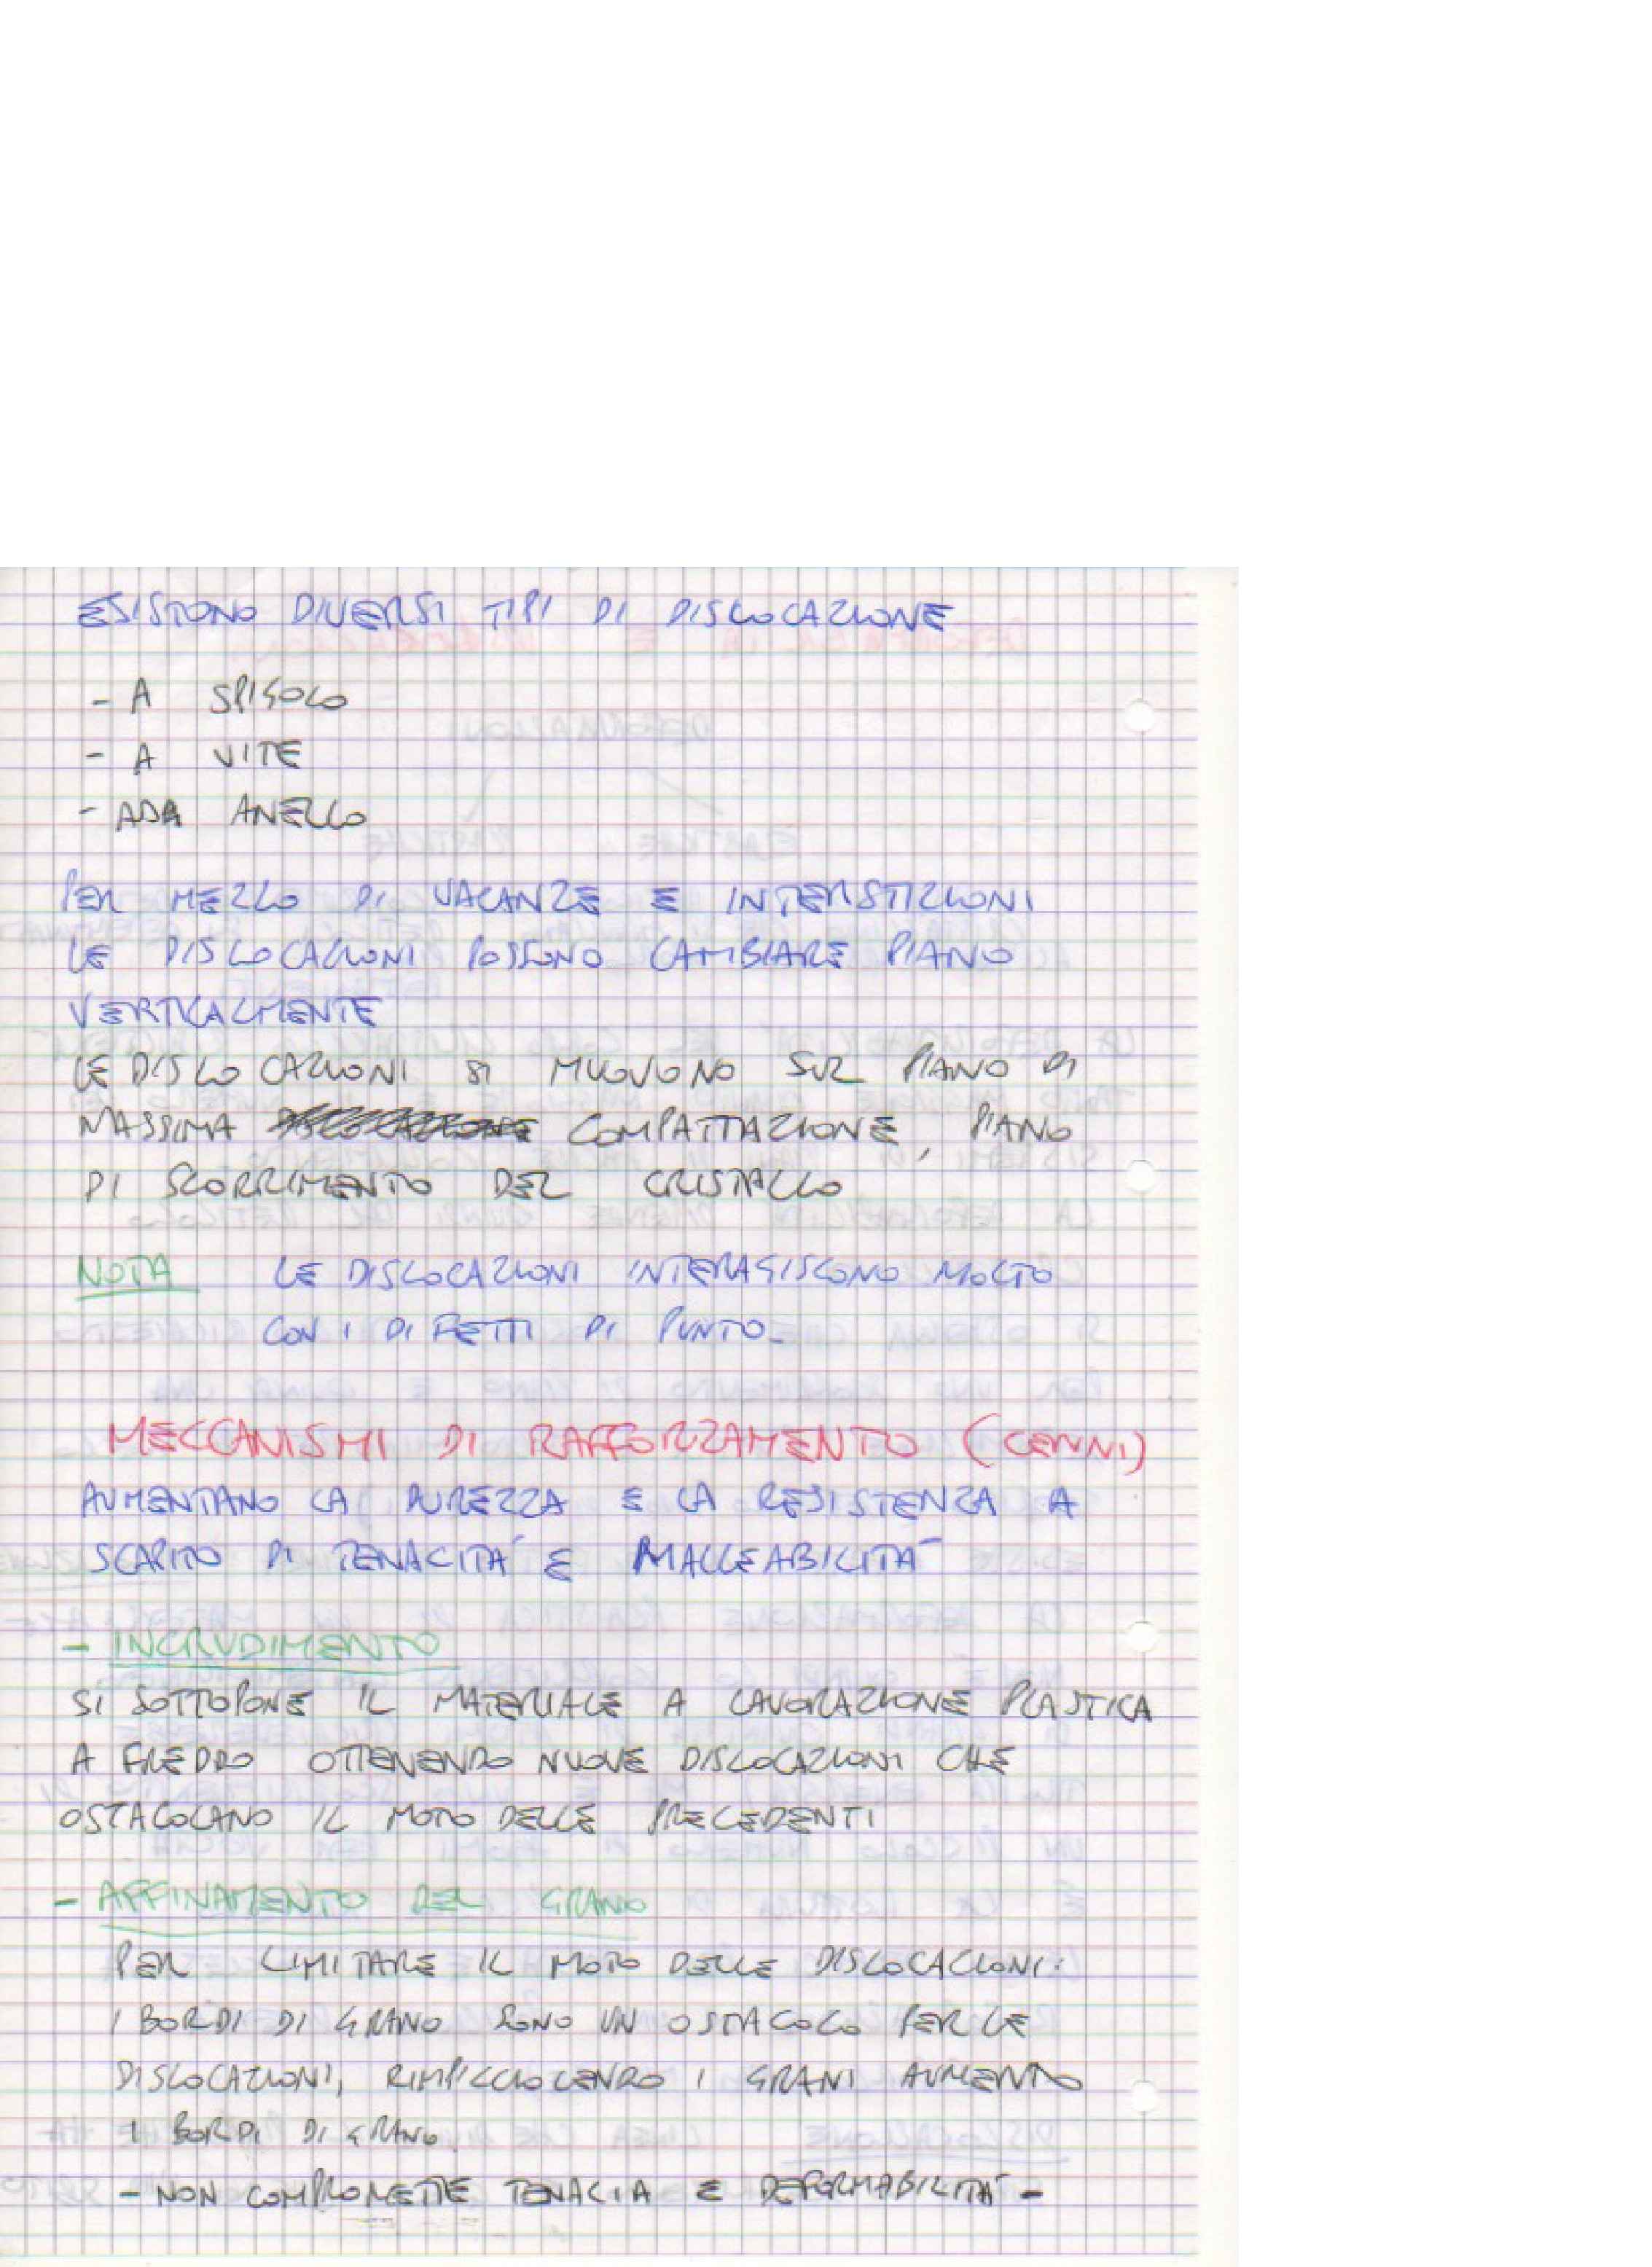 ESISTONO DIVERSI TIPI DI DISLOCAZIONE
- A SPIGOLO
- A VITE
- AD ANELLO
PER MEZZO DI VACANZE E INTERSTIZIONI
LE DISLOCAZIONI POSSONO CAMBIARE PIANO
VERTICALMENTE
LE DISLOCAZIONI SI MUOVONO SUL PIANO DI
MASSIMA COMPATTAZIONE, PIANO
DI SCORRIMENTO DEL CRISTALLO
NOTA LE DISLOCAZIONI INTERAGISCONO MOLTO
CON I DIFETTI DI PUNTO.
MECCANISMI DI RAFFORZAMENTO (CENNI)
AUMENTANO LA DUREZZA E LA RESISTENZA A
SCAPITO DI TENACITÀ E MALLEABILITÀ
- INCRUDIMENTO
SI SOTTOPONE IL MATERIALE A LAVORAZIONE PLASTICA
A FREDDO OTTENENDO NUOVE DISLOCAZIONI CHE
OSTACOLANO IL MOTO DELLE PRECEDENTI
- AFFINAMENTO DEL GRANO
PER LIMITARE IL MOTO DELLE DISLOCAZIONI:
I BORDI DI GRANO SONO UN OSTACOLO PER LE
DISLOCAZIONI, RIMPICCIOLENDO I GRANI AUMENTO
I BORDI DI GRANO.
- NON COMPROMETTE TENACIA E DEFORMABILITÀ -